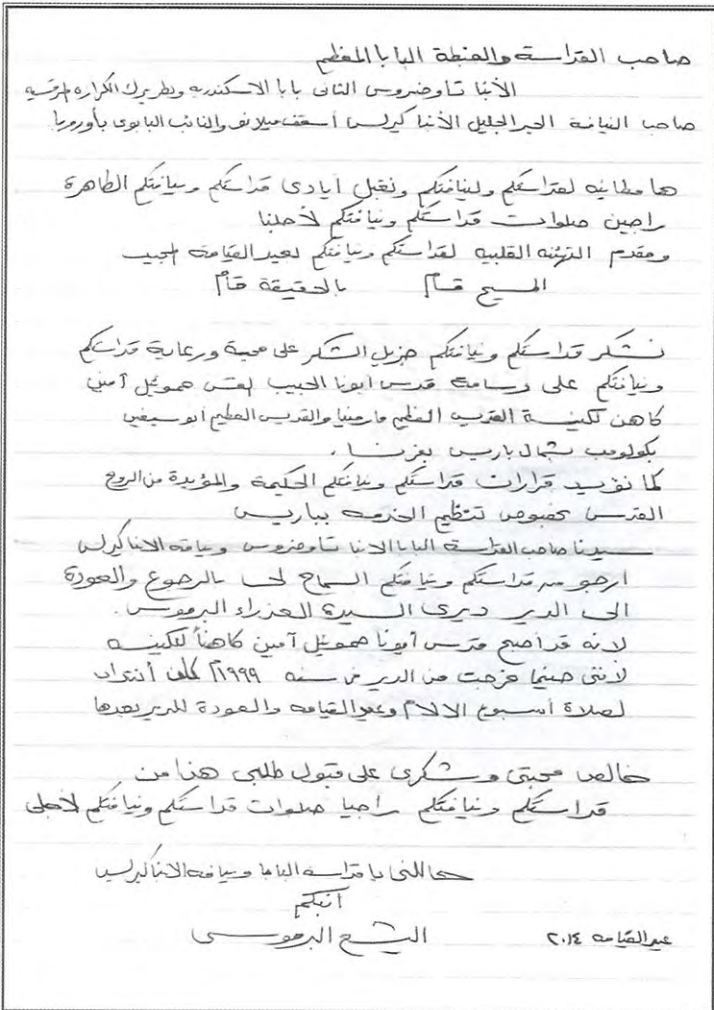 صاحب القداسة والغبطة البابا المعظم
الأنبا تاوضروس الثانى بابا الاسكندريه وبطريرك الكرازه المرقسيه
صاحب النيافة الحبر الجليل الأنبا كيرلس أسقف ميلانو والنائب البابوى بأوروبا
ها مطانيه لقداستكم ولنيافتكم ونقبل أيادى قداستكم ونيافتكم الطاهرة
راجين صلوات قداستكم ونيافتكم لأجلنا
ومقدم التهنئه القلبيه لقداستكم ونيافتكم لعيد القيامة المجيد
المسيح قام بالحقيقة قام
نشكر قداستكم ونيافتكم جزيل الشكر على محبة ورعاية قداستكم
ونيافتكم على رسامة قدس أبونا الحبيب القس صموئيل آمين
كاهن لكنيسة القديس العظيم مارمينا والقديس العظيم أبو سيفين
بكولومب بشمال باريس بفرنسا .
كما نؤيد قرارات قداستكم ونيافتكم الحكيمة والمؤيدة من الروح
القدس بخصوص تنظيم الخدمه بباريس
سيدنا صاحب القداسة البابا الانبا تاوضروس ونيافه الانبا كيرلس
ارجو من قداستكم ونيافتكم السماح لى بالرجوع والعودة
الى الدير ديرى السيدة العذراء البرموس .
لانه قد اصبح قدس أبونا صموئيل آمين كاهناً للكنيسه
لاننى حينما خرجت من الدير فى سنه ١٩٩٩م كان أنتداب
لصلاة أسبوع الالام وعيد القيامه والعودة للدير بعدها
خالص محبتى وشكرى على قبول طلبى هذا من
قداستكم ونيافتكم راجيا صلوات قداستكم ونيافتكم لأجلى
حاللنى يا قداسه البابا ونيافه الانبا كيرلس
أبنكم
عيد القيامه ٢٠١٤ اليشع البرموسى